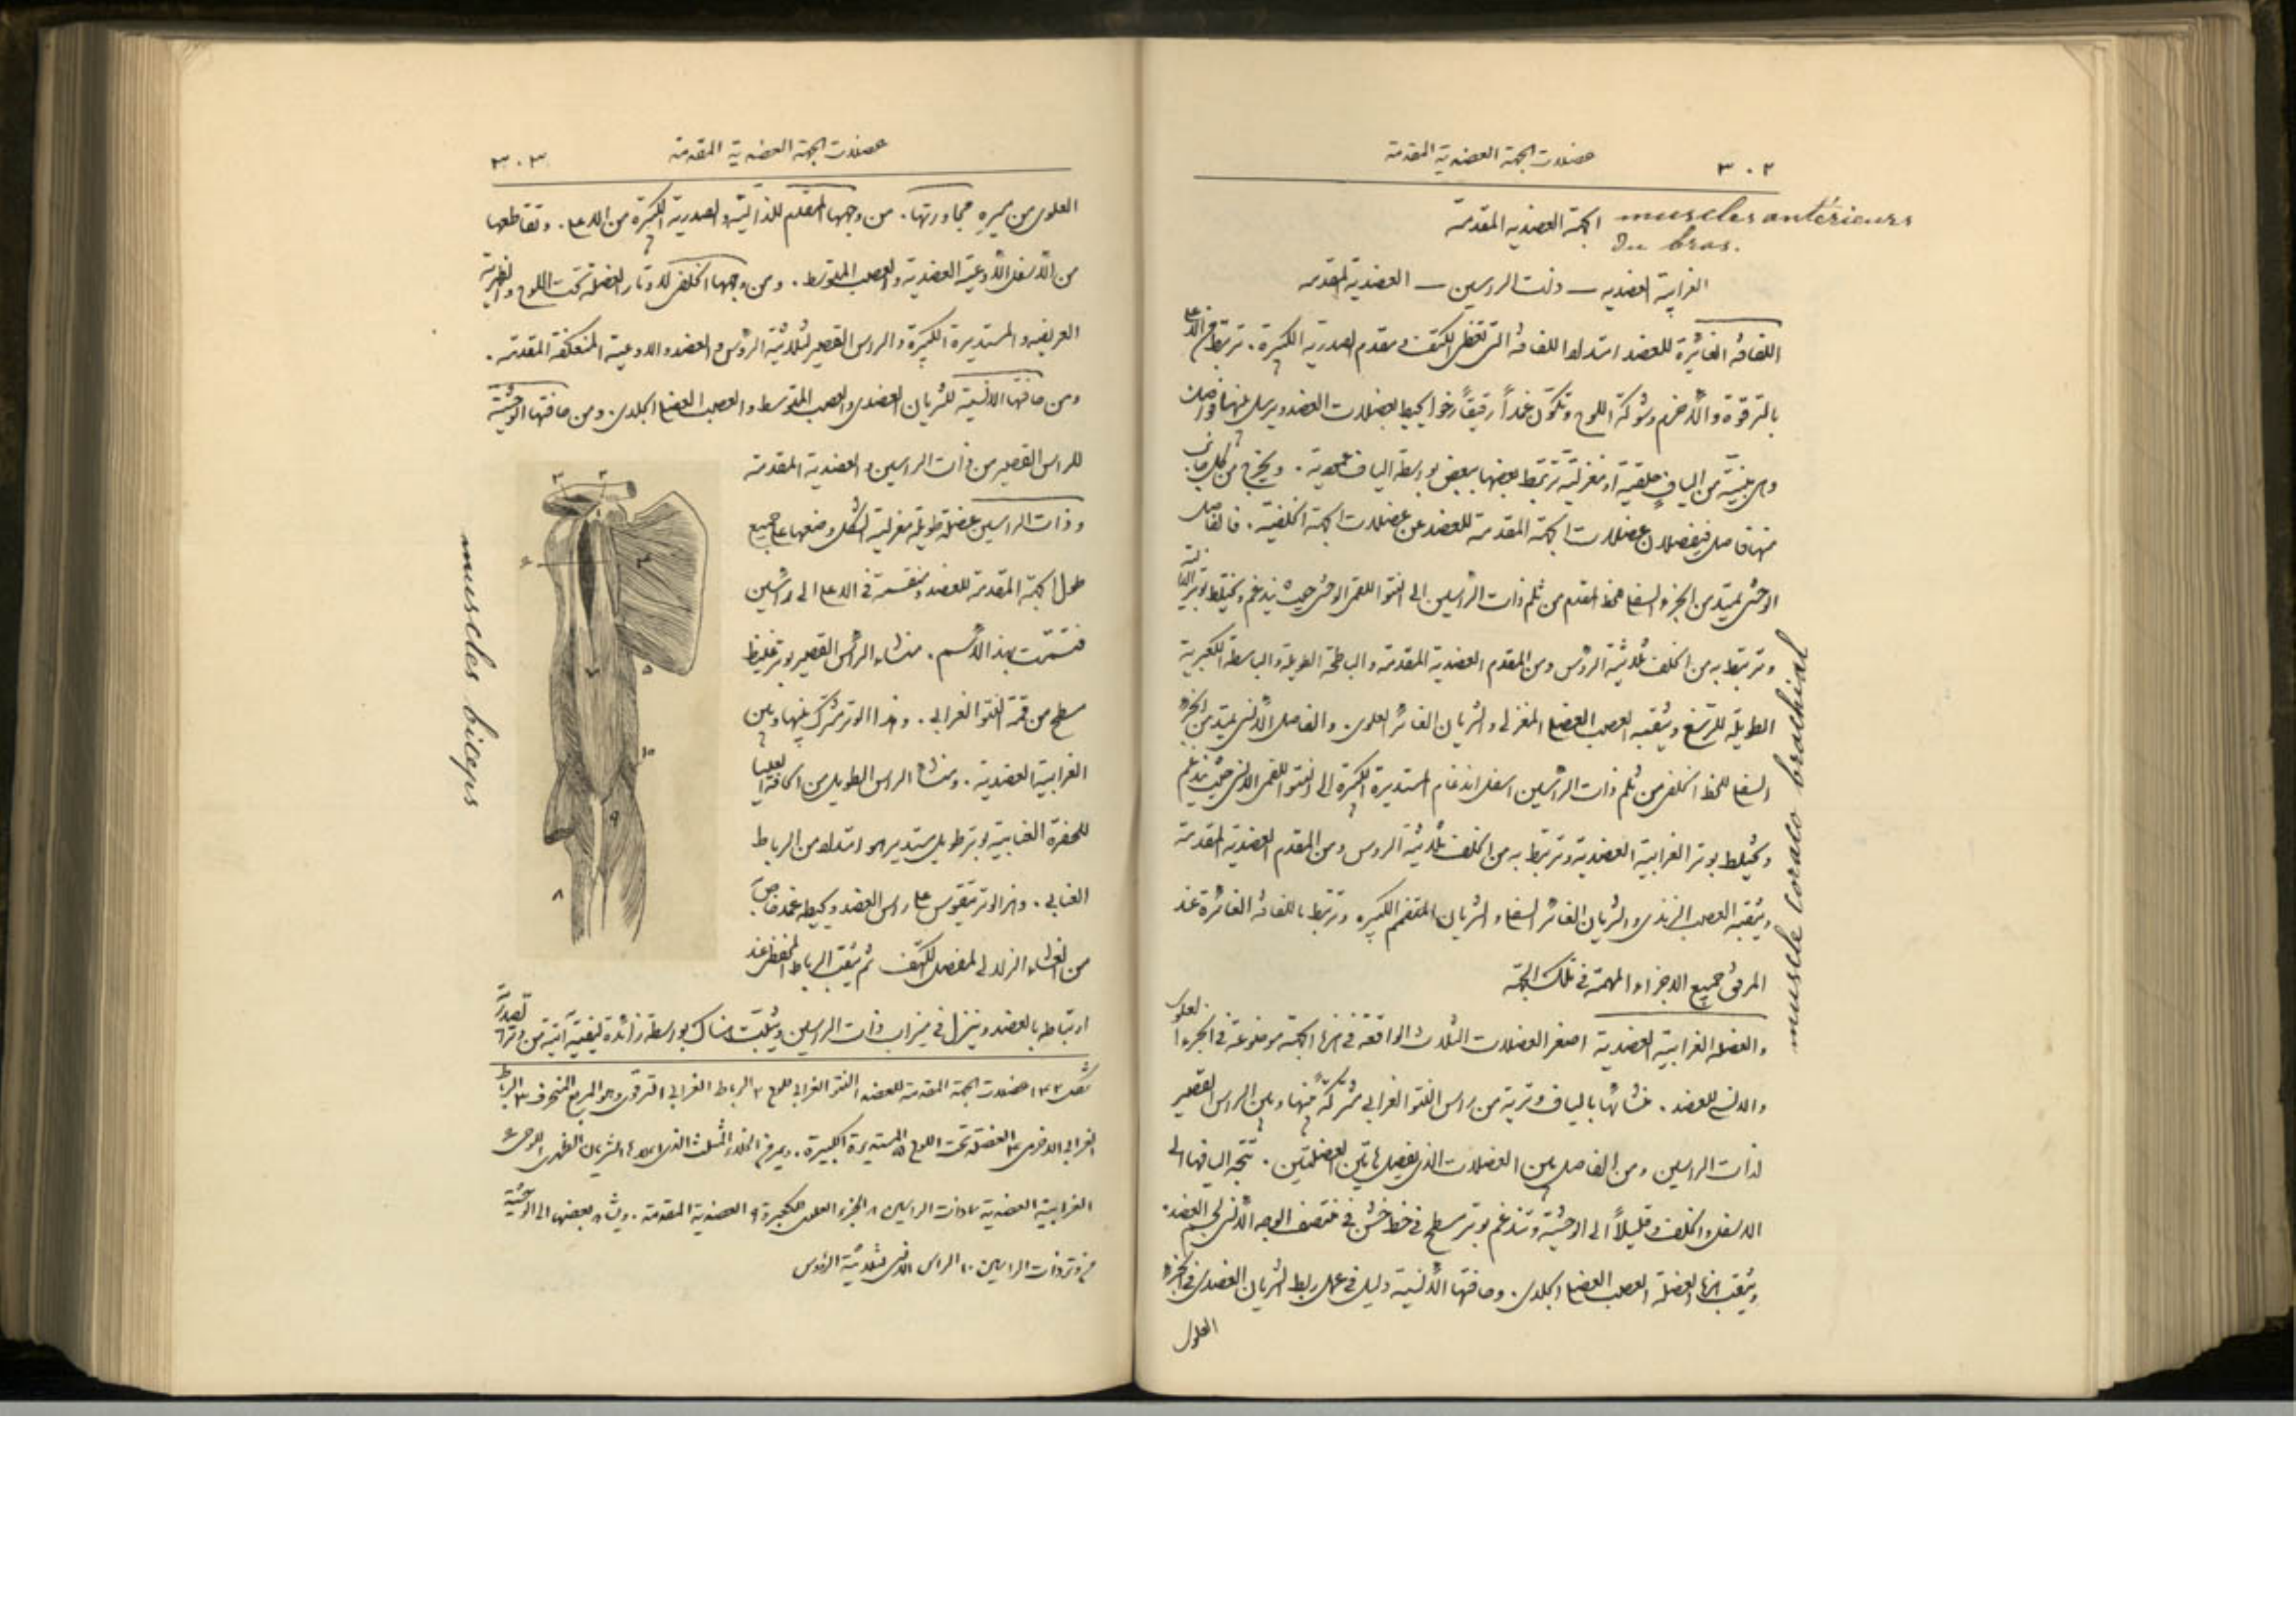 ٣٠٢ عضلات الجهة العضدية المقدمة
الجهة العضدية المقدمة muscles antérieurs
Du bras.
الغرابية العضدية — ذات الراسين — العضدية المقدمة
اللفافة الغائرة للعضد امتداد اللفافة التي تغطي الكتف ومقدم الصدرية الكبيرة. ترتبط من الاعلى
بالترقوة والاخرم وشوكة اللوح وتكوّن غمداً رقيقاً رخوا يحيط بعضلات العضد ويرسل بينها فواصل
وهي مبنية من الياف حلقية او مغزلية ترتبط بعضها ببعض بواسطة الياف عمودية. ويخرج من كل جانب
منها فاصل فيفصلان عضلات الجهة المقدمة للعضد عن عضلات الجهة الخلفية. فالفاصل
الوحشي يمتد من الجزء السفلي للخط المقدم من ثلم ذات الراسين الى النتوء اللقمي الوحشي حيث يندغم ويختلط بوتر الدالية
وترتبط به من الخلف ثلاثية الرؤس ومن المقدم العضدية المقدمة والباطحة الطويلة والباسطة الكعبرية
الطويلة للرسغ ويثقبه العصب العضلي المغزلي والشريان الغائر العلوي. والفاصل الانسي يمتد من الجزء
السفلي للخط الخلفي من ثلم ذات الراسين اسفل اندغام المستديرة الكبيرة الى النتوء اللقمي الانسي حيث يندغم
ويختلط بوتر الغرابية العضدية وترتبط به من الخلف ثلاثية الروس ومن المقدم العضدية المقدمة
ويثقبه العصب الزندي والشريان الغائر السفلي والشريان المتفمم الكبير. وترتبط باللفافة الغائرة عند
المرفق جميع الاجزاء المهمة في تلك الجهة
والعضلة الغرابية العضدية اصغر العضلات الثلاث الواقعة في هذه الجهة موضوعة في الجزء العلوي
والانسي للعضد. منشائها بالياف وترية من راس النتو الغرابي مشتركة بينها وبين الراس القصير
لذات الراسين ومن الفاصل بين العضلات الذي يفصل هاتين العضلتين. تتجه اليافها الى
الاسفل والخلف وقليلاً الى الوحشية وتندغم بوتر مسطح في خط خشن في منتصف الوجه الانسي لجسم العضد.
ويثقب هذه العضلة العصب العضلي الجلدي. وحافتها الانسية دليل في عمل ربط الشريان العضدي في الجزء
العلوي
muscle coraco brachial
عضلات الجهة العضدية المقدمة ٣٠٣
العلوي من سيره مجاورتها. من وجهها المقدم للدالية والصدرية الكبيرة من الاعلى. وتقاطعها
من الاسفل الاوعية العضدية والعصب المتوسط. ومن وجهها الخلفي لاوتار العضلة تحت اللوح والظهرية
العريضة والمستديرة الكبيرة والراس القصير لثلاثية الرؤس والعضد والاوعية المنعكفة المقدمة.
ومن حافتها الانسية للشريان العضدي والعصب المتوسط والعصب العضلي الجلدي. ومن حافتها الوحشية
للراس القصير من ذات الراسين والعضدية المقدمة
وذات الراسين عضلة طويلة مغزلية الشكل وضعها على جميع
طول الجهة المقدمة للعضد ومنقسمة في الاعلى الى راسين
فتسمت بهذا الاسم. منشاء الراس القصير بوتر غليظ
مسطح من قمة النتو الغرابي. وهذا الوتر مشترك بينها وبين
الغرابية العضدية. ومنشأ الراس الطويل من الحافة العليا
للحفرة العنابية بوتر طويل مستدير هو امتداد من الرباط
العنابي. وهذا الوتر يتقوس على راس العضد ويحيطه غمد خاص
من الغشاء الزلالي لمفصل الكتف ثم يثقب الرباط المحفظي عند
ارتباطه بالعضد وينزل في ميزاب ذات الراسين ويثبت هناك بواسطة زائدة ليفية آتية من وتر الصدرية
muscles biceps
٣ ٢ ٤ ٦ ٧ ٥ ١٠ ٩ ٨
شكل ١٣٢ عضلات الجهة المقدمة للعضد ١ النتو الغرابي للوح ٢ الرباط الغرابي الترقوي وهو المربع المنحرف ٣ الرباط
الغرابي الاخرمي ٤ العضلة تحت اللوح ٥ المستديرة الكبيرة.
الغرابية العضدية ٧ ذات الراسين ٨ الجزء العلوي للكعبرة ٩ العضدية المقدمة. ويشاهد بعضها الى الوحشية
من وتر ذات الراسين ١٠ الراس الانسي لثلاثية الرؤس